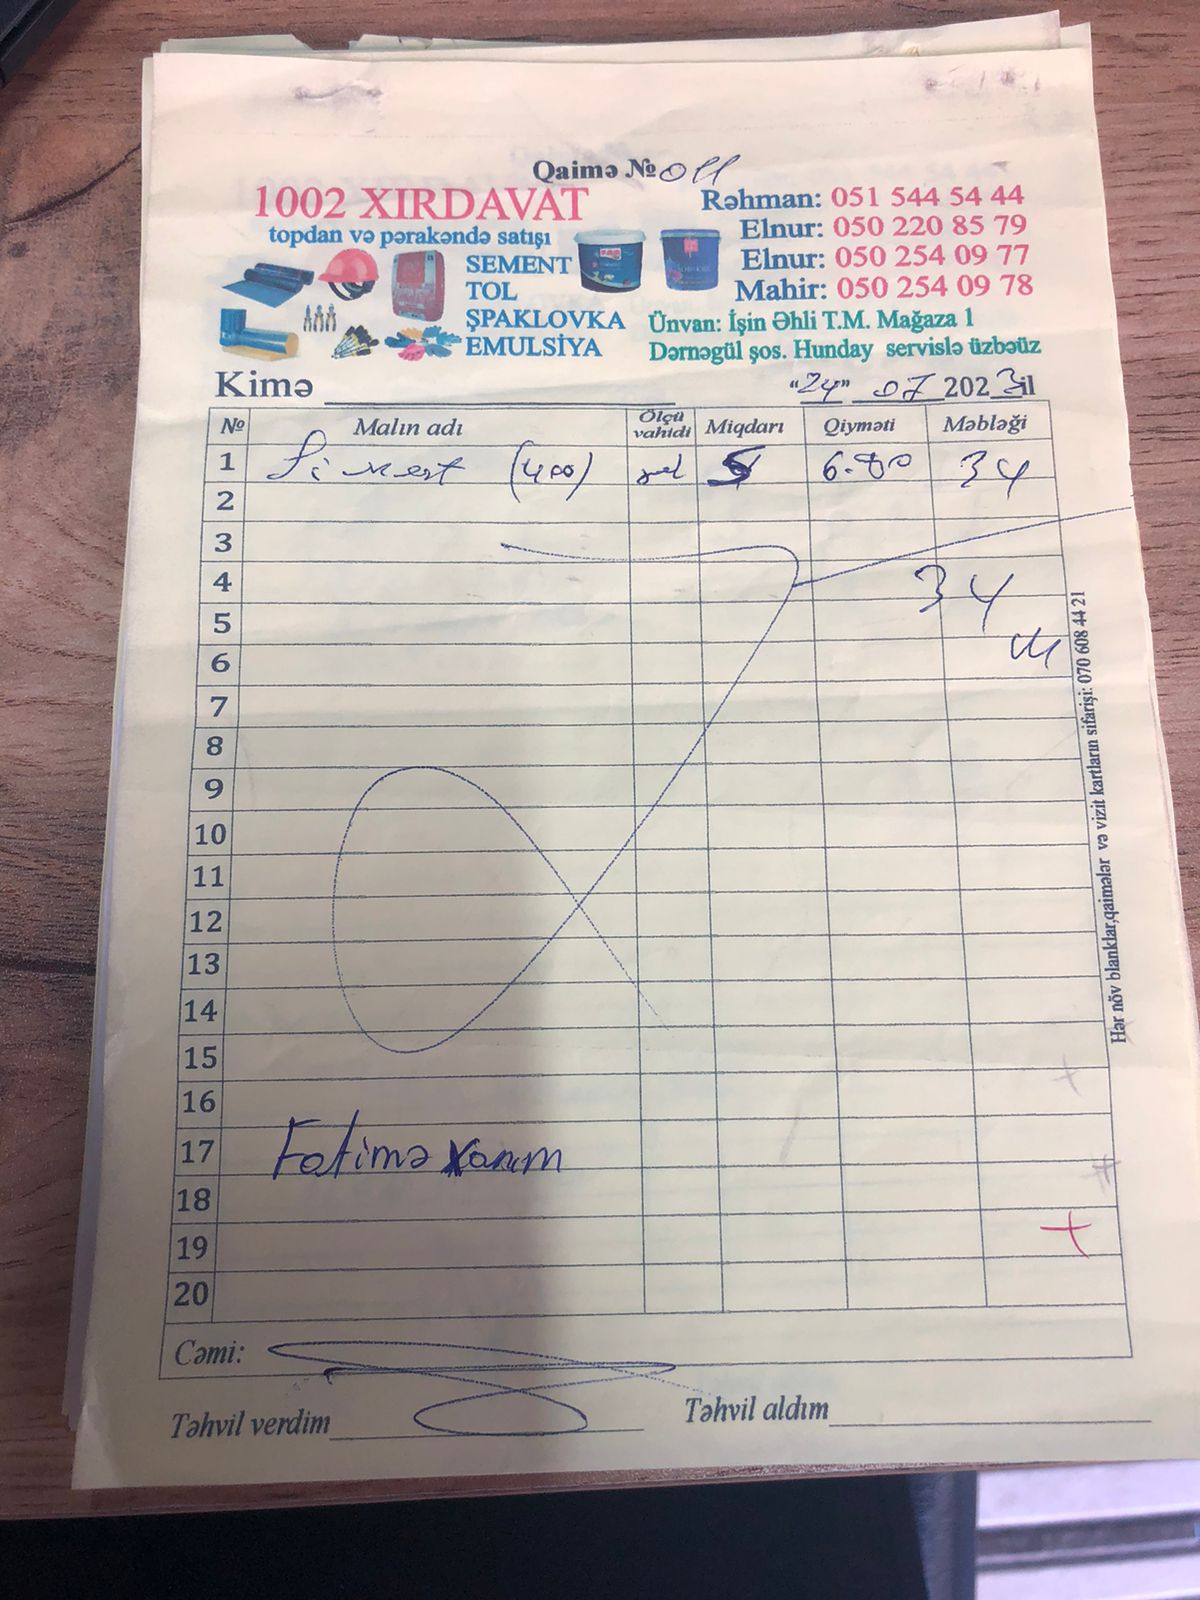 Qaimə № 011
1002 XIRDAVAT
topdan və pərakəndə satışı
SEMENT
TOL
ŞPAKLOVKA
EMULSİYA
Rəhman: 051 544 54 44
Elnur: 050 220 85 79
Elnur: 050 254 09 77
Mahir: 050 254 09 78
Ünvan: İşin Əhli T.M. Mağaza 1
Dərnəgül şos. Hunday servislə üzbəüz
Kimə
"24" 07 2023 il
№ Malın adı Ölçü vahidi Miqdarı Qiyməti Məbləği
1 Siment (400) 5 6.80 34
2
3
4 34
5
6
7
8
9
10
11
12
13
14
15
16
17 Fatimə xanım
18
19
20
Cəmi:
Təhvil verdim
Təhvil aldım
Hər növ blanklar,qaimələr və vizit kartların sifarişi: 070 608 44 21